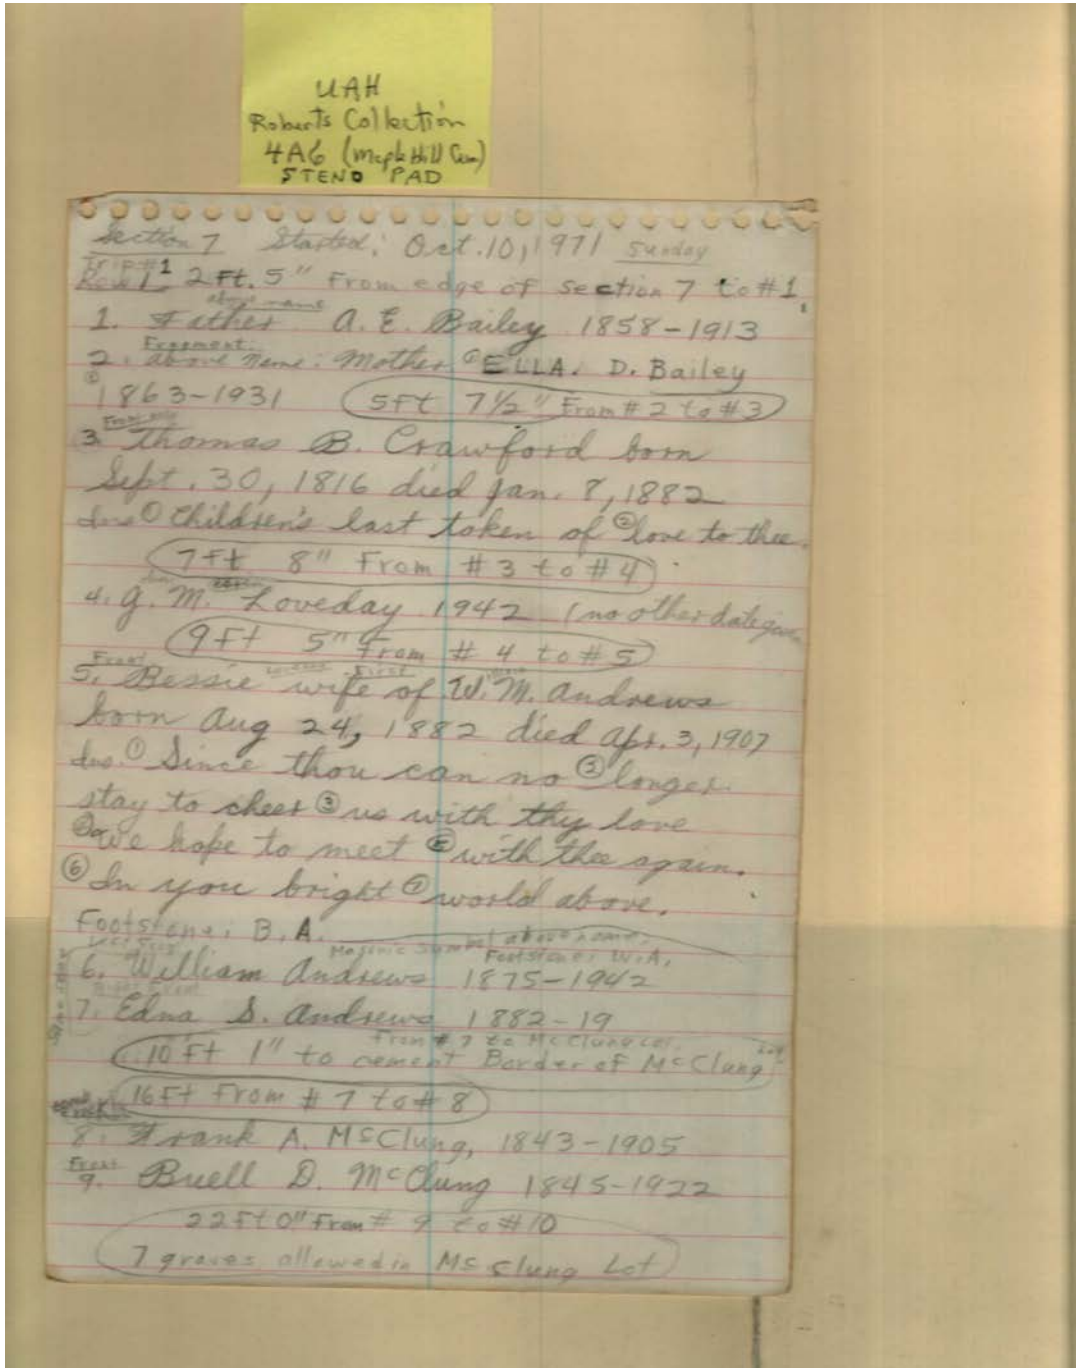 UAH
Roberts Collection
4A6 (Maple Hill Cem)
STENO PAD
Section 7 Started: Oct. 10, 1971 Sunday
Trip #1
Row 1 2 Ft. 5" From edge of section 7 to #1
above name
1. Father A. E. Bailey 1858-1913
Fragment
2. above Name: Mother ① ELLA. D. Bailey
② 1863-1931 5 Ft 7 1/2" From #2 to #3
3. Thomas B. Crawford born
Sept. 30, 1816 died Jan. 8, 1882
Ins ① Children's last token of ② love to thee.
7 Ft 8" From #3 to #4
4. G. M. Loveday 1942 (no other date given
9 Ft 5" From #4 to #5
Front First
5. Bessie wife of W. M. Andrews
born Aug 24, 1882 died Apr. 3, 1907
Ins. ① Since thou can no ② longer
stay to cheer ③ us with thy love
④ We hope to meet ⑤ with thee again.
⑥ In you bright ⑦ world above.
Footstone: B. A.
Masonic Symbol above name.
Left Footstone: W. A.
6. William Andrews 1875-1942
Right Front
7. Edna S. Andrews 1882-19
From #7 to McClung Lot.
10 Ft 1" to cement Border of McClung Lot
16 Ft From #7 to #8
8. Frank A. McClung, 1843-1905
Front
9. Buell D. McClung 1845-1922
22 Ft 0" From #9 to #10
7 graves allowed in McClung Lot